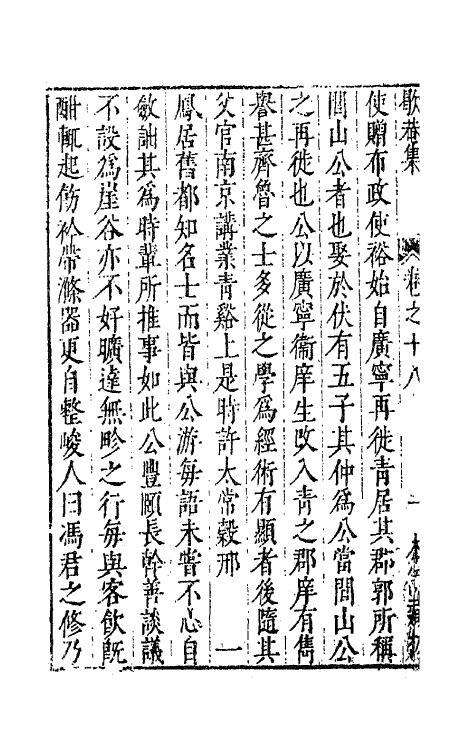 歇菴集　卷之十八　一
使贈布政使裕始自廣寧再徙青居其郡郭所稱
閭山公者也娶於伏有五子其仲為公當閭山公
之再徙也公以廣寧衞庠生改入青之郡庠有雋
譽甚齊魯之士多從之學為經術有顯者後隨其
父官南京講業青谿上是時許太常穀邢　一
鳳居舊都知名士而皆與公游每語未甞不心自
斂詘其為時輩所推事如此公豐頤長幹善談議
不設為崖谷亦不好曠達無畛之行每與客飲旣
酣輒起飭衿帶滌器更自整峻人曰馮君之修乃